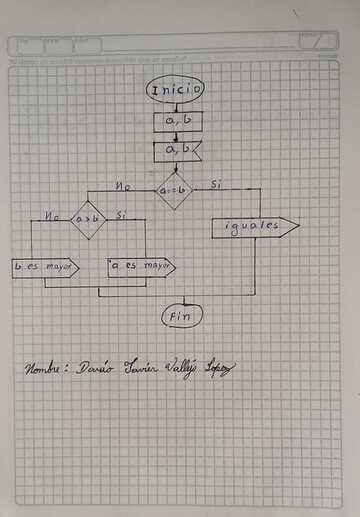 Inicio
a, b
a, b
No a==b Si
No a > b Si
iguales
b es mayor a es mayor
Fin
Nombre: Darío Javier Vallejo Lopez